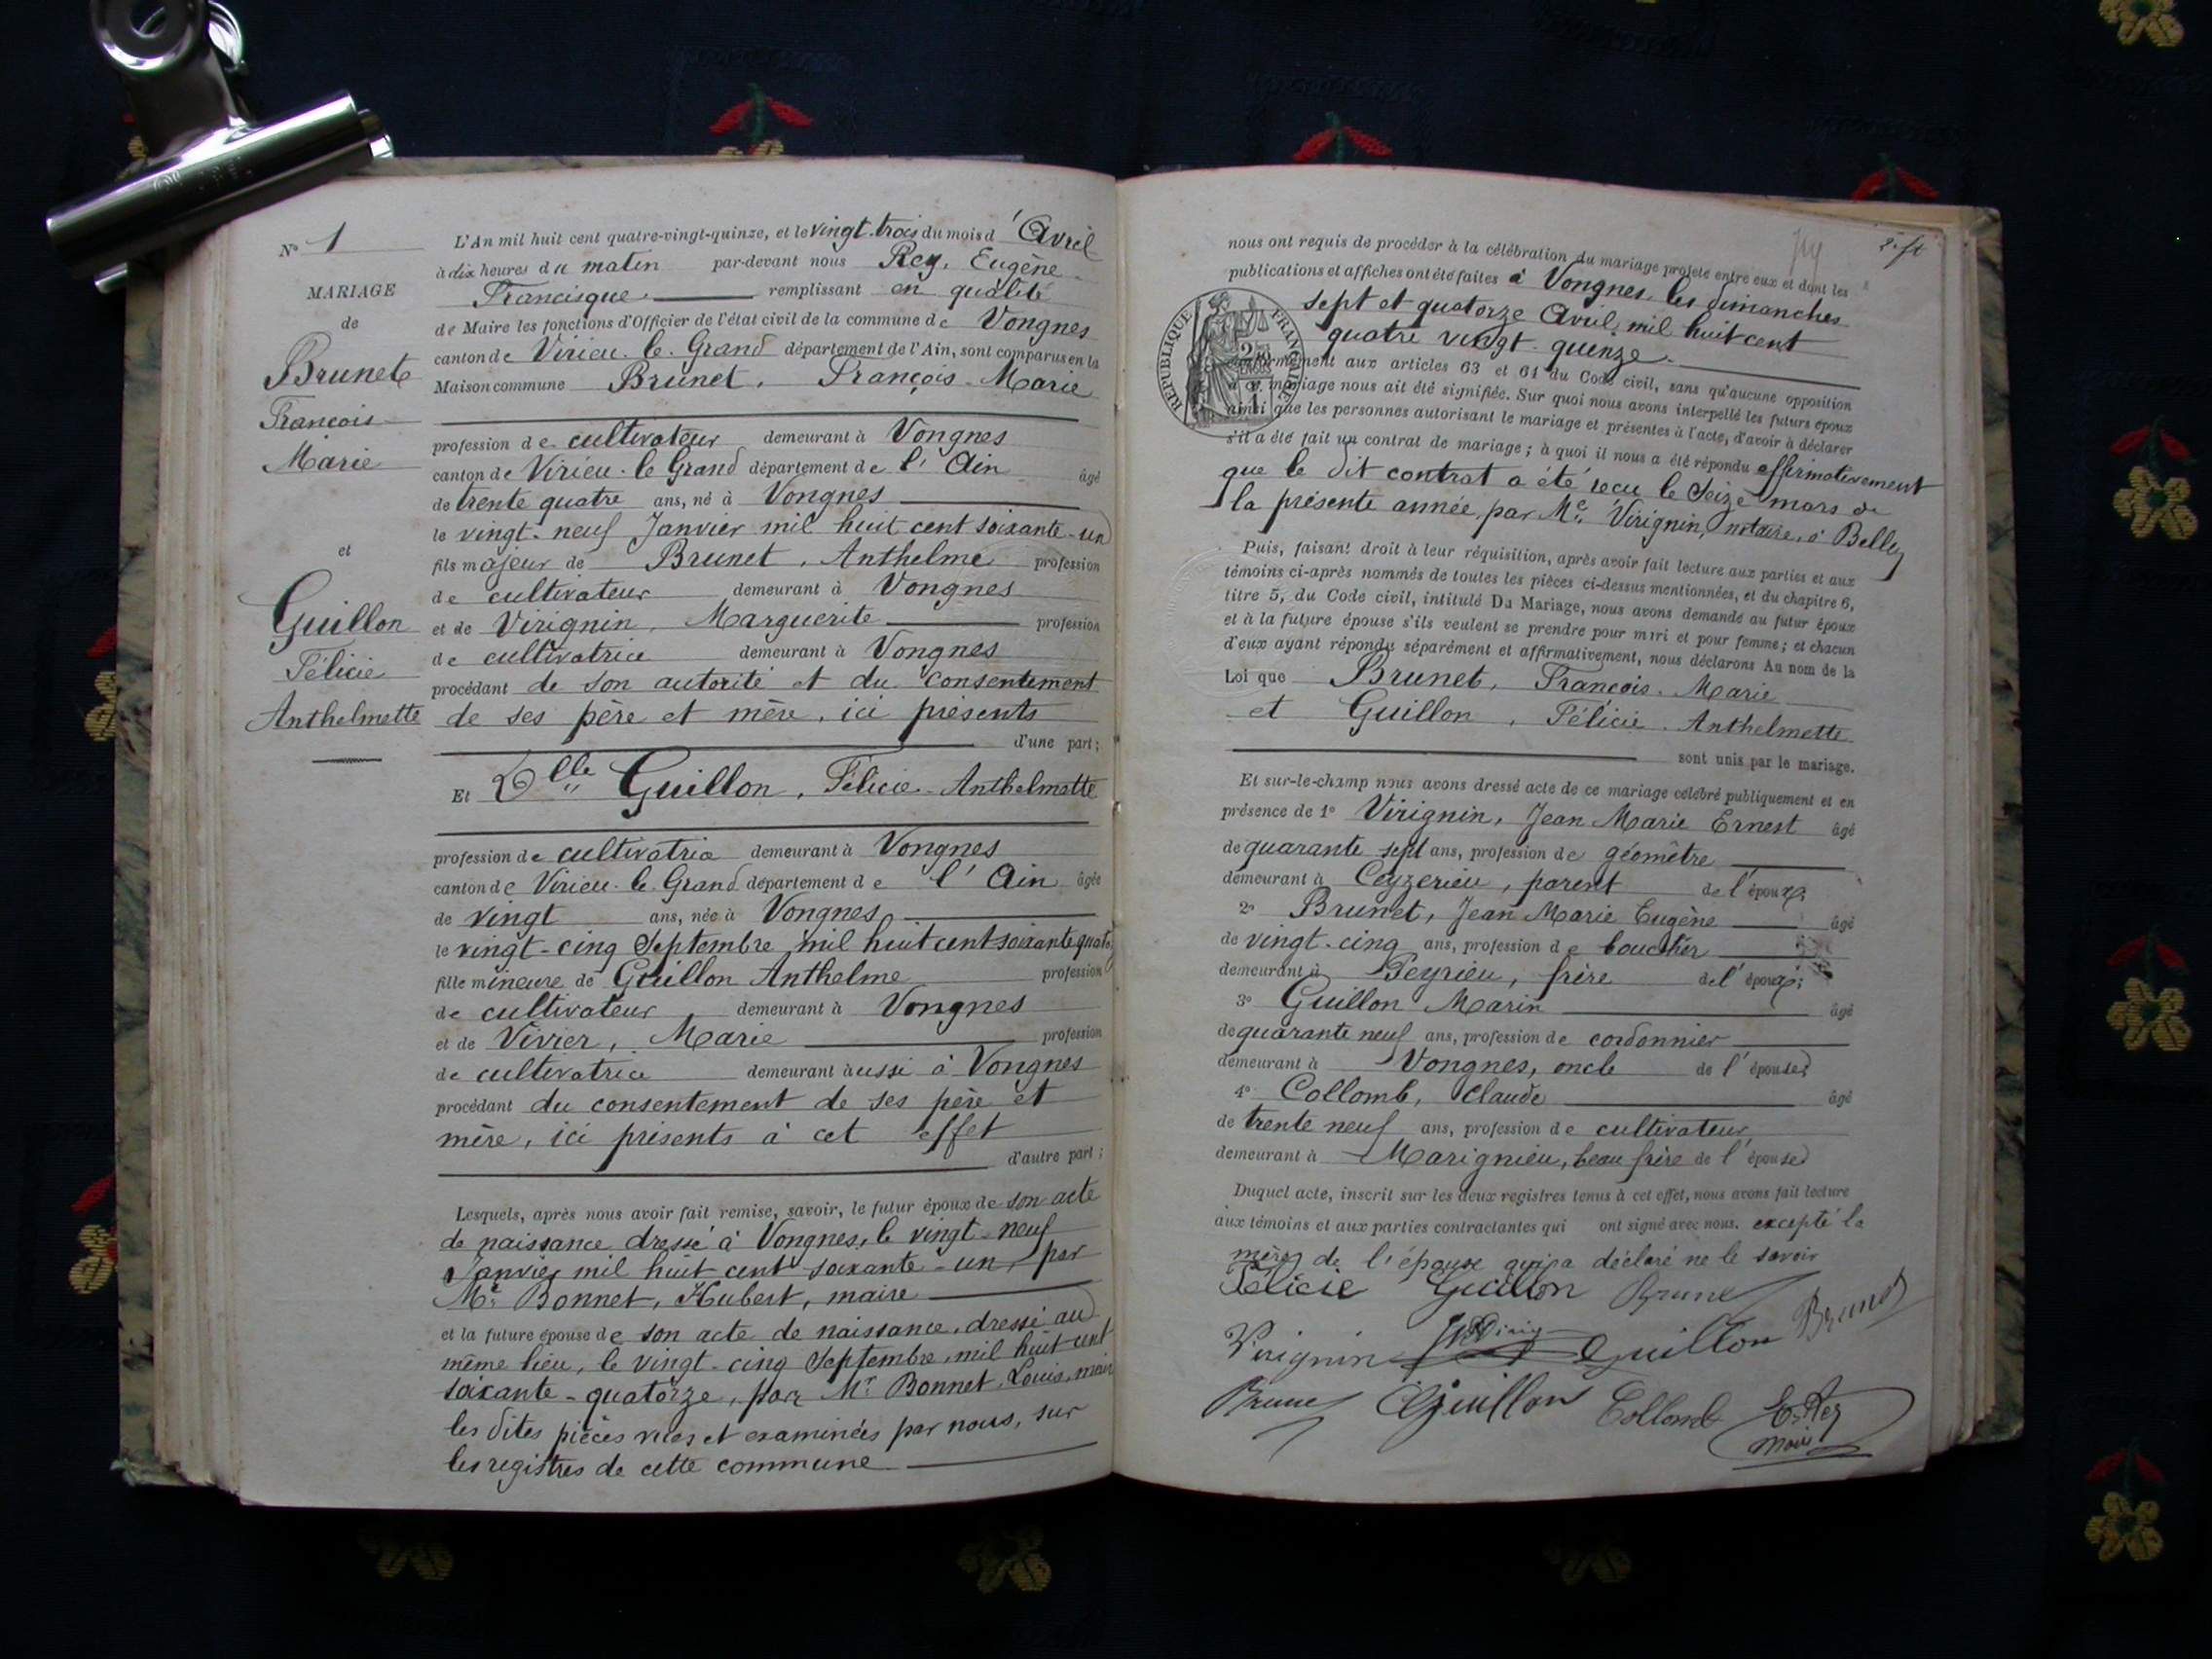 N° 1
MARIAGE
de
Brunet
François
Marie
et
Guillon
Félicie
Anthelmette
L'An mil huit cent quatre-vingt-quinze, et le vingt-trois du mois d'Avril
à dix heures du matin par-devant nous Rey, Eugène
Francisque remplissant en qualité
de Maire les fonctions d'Officier de l'état civil de la commune de Vongnes
canton de Virieu-le-Grand département de l'Ain, sont comparus en la
Maison commune Brunet, François-Marie
profession de cultivateur demeurant à Vongnes
canton de Virieu-le-Grand département de l'Ain âgé
de trente quatre ans, né à Vongnes
le vingt-neuf Janvier mil huit cent soixante-un
fils majeur de Brunet, Anthelme profession
de cultivateur demeurant à Vongnes
et de Virignin, Marguerite profession
de cultivatrice demeurant à Vongnes
procédant de son autorité et du consentement
de ses père et mère, ici présents
d'une part;
Et Dlle Guillon, Félicie-Anthelmette
profession de cultivatrice demeurant à Vongnes
canton de Virieu-le-Grand département de l'Ain âgée
de vingt ans, née à Vongnes
le vingt-cinq Septembre mil huit cent soixante quato
fille mineure de Guillon Anthelme profession
de cultivateur demeurant à Vongnes
et de Vivier, Marie profession
de cultivatrice demeurant aussi à Vongnes
procédant du consentement de ses père et
mère, ici présents à cet effet
d'autre part;
Lesquels, après nous avoir fait remise, savoir, le futur époux de son acte
de naissance dressé à Vongnes, le vingt-neuf
Janvier mil huit cent soixante-un, par
Mr Bonnet, Hubert, maire
et la future épouse de son acte de naissance, dressé au
même lieu, le vingt-cinq Septembre, mil huit cent
soixante-quatorze, par Mr Bonnet, Louis, maire
les dites pièces vues et examinées par nous, sur
les registres de cette commune
nous ont requis de procéder à la célébration du mariage projeté entre eux et dont les
publications et affiches ont été faites à Vongnes, les dimanches
sept et quatorze Avril, mil huit cent
quatre vingt-quinze.
RÉPUBLIQUE FRANÇAISE
conformément aux articles 63 et 64 du Code civil, sans qu'aucune opposition
à ce mariage nous ait été signifiée. Sur quoi nous avons interpellé les futurs époux
ainsi que les personnes autorisant le mariage et présentes à l'acte, d'avoir à déclarer
s'il a été fait un contrat de mariage; à quoi il nous a été répondu affirmativement
que le dit contrat a été reçu le seize mars de
la présente année, par Me Virignin, notaire, à Belley
Puis, faisant droit à leur réquisition, après avoir fait lecture aux parties et aux
témoins ci-après nommés de toutes les pièces ci-dessus mentionnées, et du chapitre 6,
titre 5, du Code civil, intitulé Du Mariage, nous avons demandé au futur époux
et à la future épouse s'ils veulent se prendre pour mari et pour femme; et chacun
d'eux ayant répondu séparément et affirmativement, nous déclarons Au nom de la
Loi que Brunet, François-Marie
et Guillon, Félicie-Anthelmette
sont unis par le mariage.
Et sur-le-champ nous avons dressé acte de ce mariage célébré publiquement et en
présence de 1° Virignin, Jean Marie Ernest âgé
de quarante sept ans, profession de géomètre
demeurant à Ceyzerieu, parent de l'époux;
2° Brunet, Jean Marie Eugène âgé
de vingt-cinq ans, profession de boucher
demeurant à Peyrieu, frère de l'époux;
3° Guillon Marin âgé
de quarante neuf ans, profession de cordonnier
demeurant à Vongnes, oncle de l'épouse;
4° Collomb, Claude âgé
de trente neuf ans, profession de cultivateur
demeurant à Marignieu, beau frère de l'épouse
Duquel acte, inscrit sur les deux registres tenus à cet effet, nous avons fait lecture
aux témoins et aux parties contractantes qui ont signé avec nous. excepté la
mère de l'épouse qui a déclaré ne le savoir
Félicie Guillon Brunet
Virignin Guillon Brunet
Brunet Guillon Collomb E. Rey
Maire